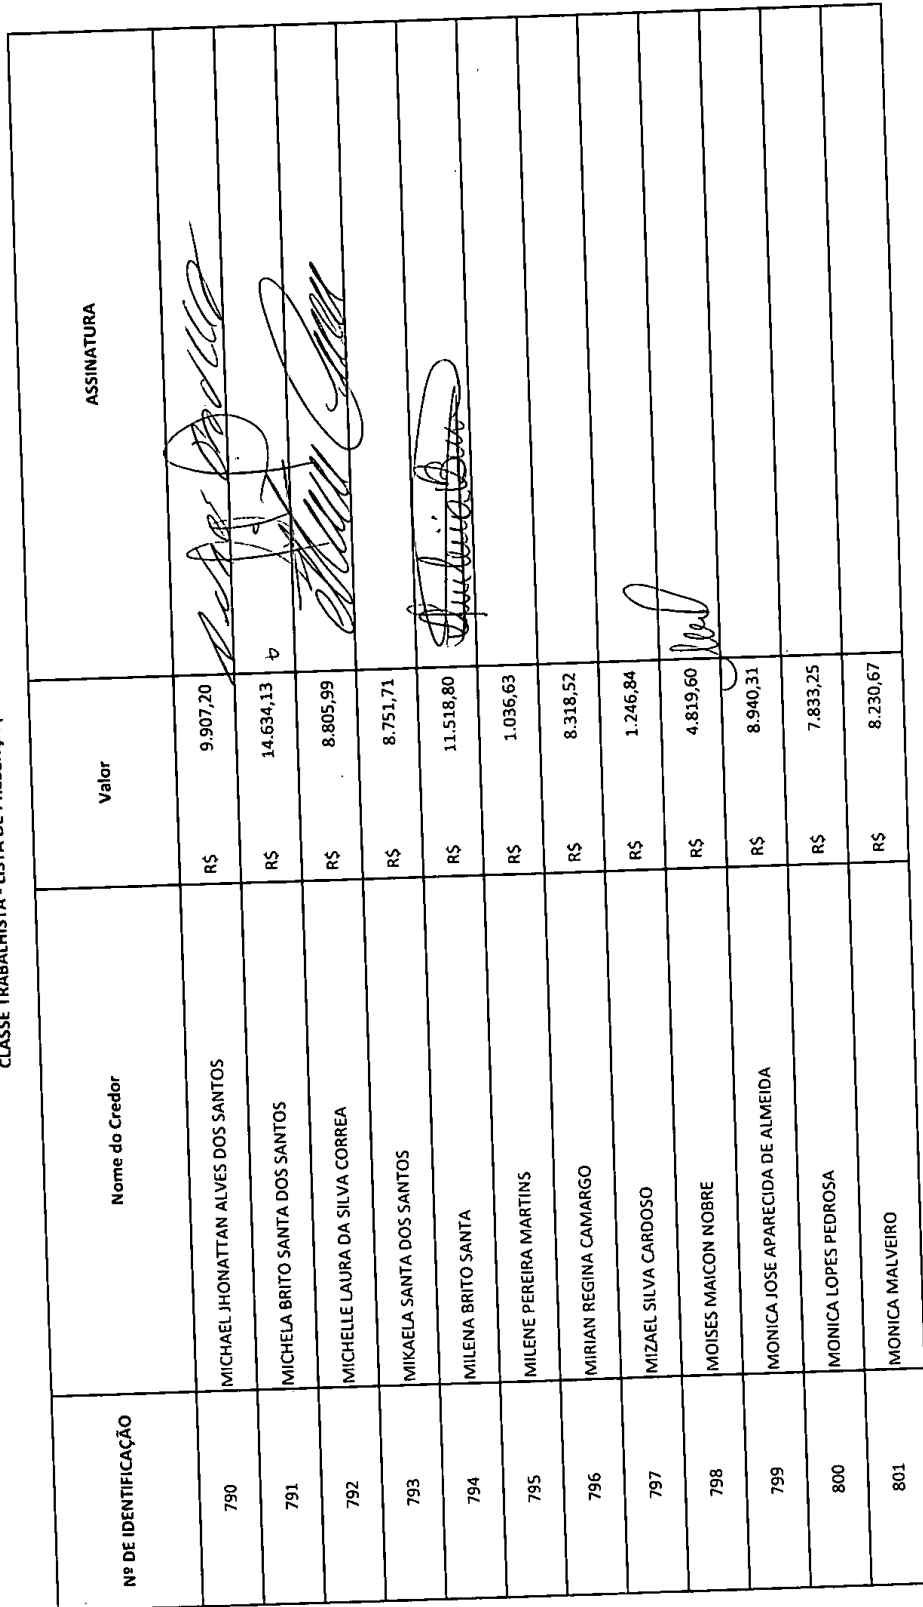 CLASSE TRABALHISTA - LISTA DE
Nº DE IDENTIFICAÇÃO Nome do Credor Valor ASSINATURA
790 MICHAEL JHONATTAN ALVES DOS SANTOS R$ 9.907,20
791 MICHELA BRITO SANTA DOS SANTOS R$ 14.634,13
792 MICHELLE LAURA DA SILVA CORREA R$ 8.805,99
793 MIKAELA SANTA DOS SANTOS R$ 8.751,71
794 MILENA BRITO SANTA R$ 11.518,80
795 MILENE PEREIRA MARTINS R$ 1.036,63
796 MIRIAN REGINA CAMARGO R$ 8.318,52
797 MIZAEL SILVA CARDOSO R$ 1.246,84
798 MOISES MAICON NOBRE R$ 4.819,60
799 MONICA JOSE APARECIDA DE ALMEIDA R$ 8.940,31
800 MONICA LOPES PEDROSA R$ 7.833,25
801 MONICA MALVEIRO R$ 8.230,67